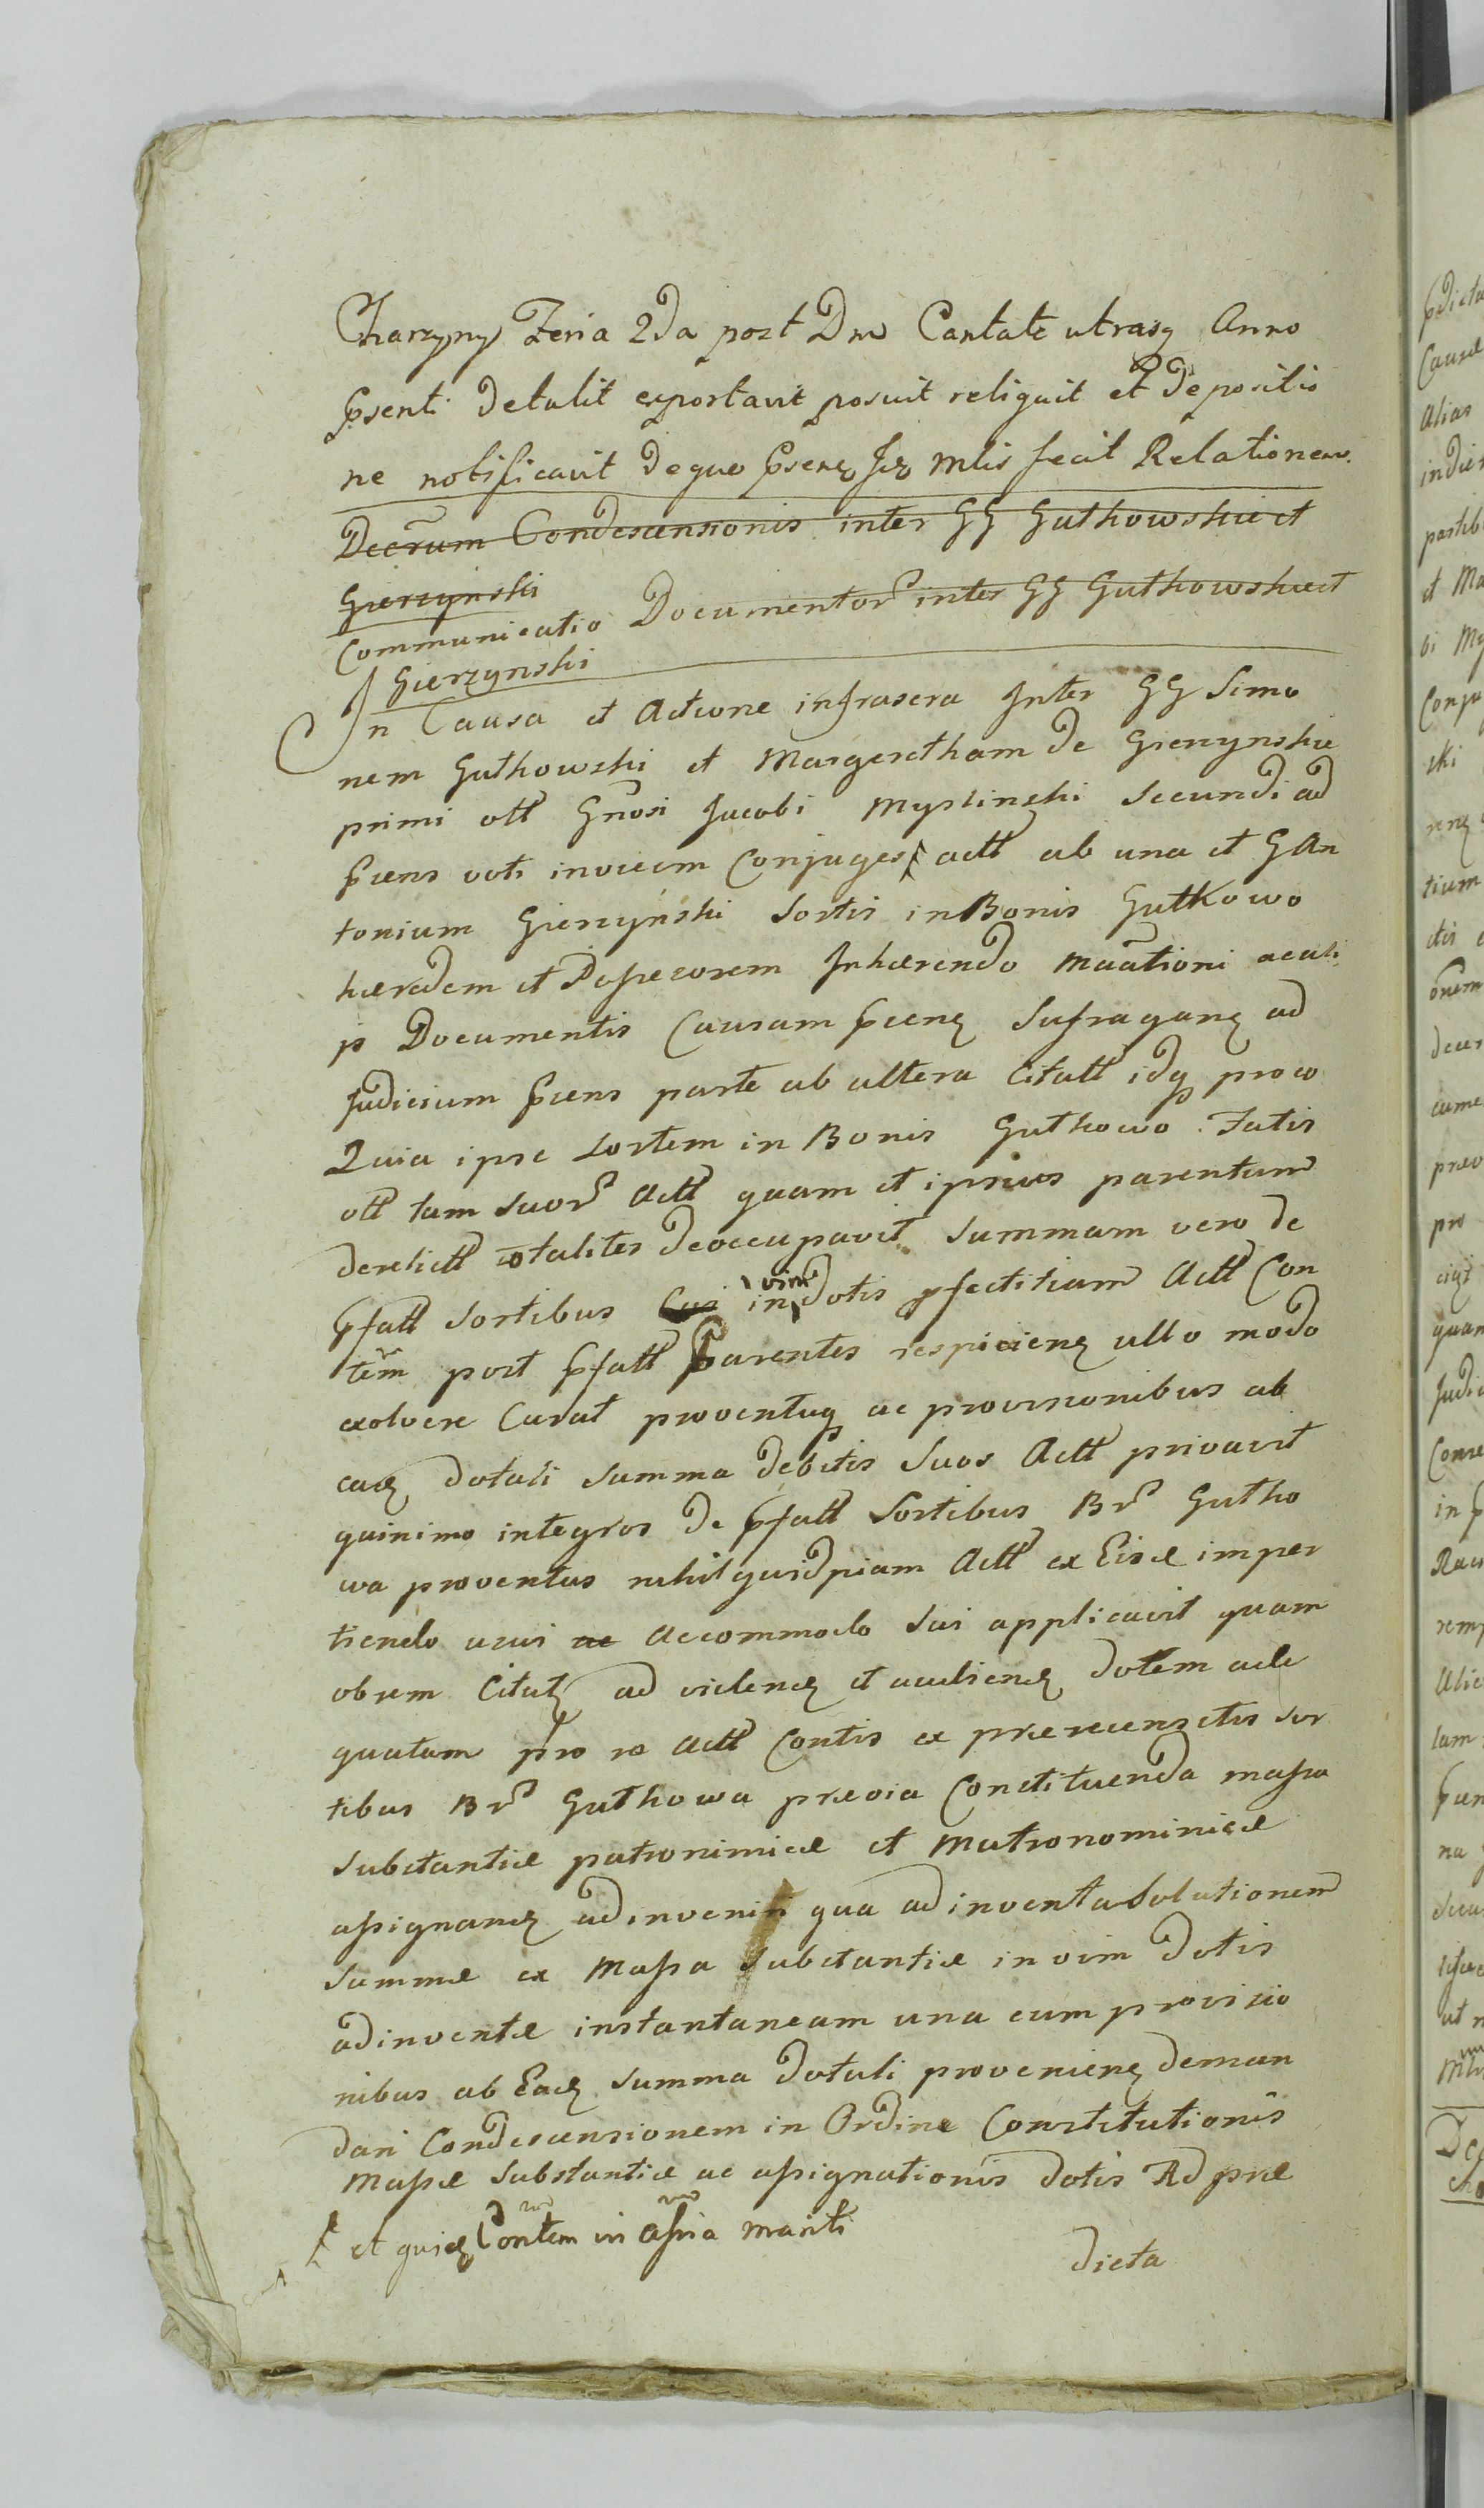 Charzyny Feria 2da post Dnō Cantate utrasq Anno
psenti detulit exportavit posuit reliquit et depositio
ne notificavit deque psenq Jcq Mlis fecit Relationem.
Decrum Condescensionis inter GG Guthowskie et
Gierzynski
Communicatio Documentor inter GG Guthowskie et
Gierzynski
In Causa et Actione infrascra Inter GG Simo
nem Guthowski et Margeretham de Gierzynskie
primi ott Gnosi Jacobi Myslinski Secundi ad
psens voti invicem Conjuges actt ab una et G An
tonium Gierzyński Sortis in Bonis Gutkowo
hæredem et Possesorem Inhærendo
p Documentis Causam psenq Sufraganq ad
Judicium psens parte ab altera Citatt idq proeo
Quia ipse Sortem in Bonis Guthowo Fatis
ott tam Suor Actt quam et ipsius parentum
derelictt totaliter deoccupavit Summam vero de
pfatt Sortibus in vim dotis pfectitiam Actt Con
tem post pfatt Parentes respicienq ullo modo
exolvere Curat proventuq ac provisionibus ab
eadq dotali Summa debitis Suos Actt privavit
quinimo integros de pfatt Sortibus Br Gutho
wa proventus nihilquidpiam Actt ex Eisd imper
tiendo usui ac accommodo Sui applicavit quam
obrem Citatq ad videndq et audiendq dotem ade
quatam pro re Actt Contis ex prærecensitis Sor
tibus Br Guthowa prævia Constituenda massa
Substantiæ patronimicæ et Matronominicæ
assignandq adinveniri qua adinventa Solutionem
Summæ ex Massa Substantiæ in vim dotis
adinventæ instantaneam una cum provisio
nibus ab Eadq Summa dotali provenienq deman
dari Condescensionem in Ordine Constitutionis
Massæ Substantiæ ac assignationis dotis Ad præ
et quidq Contem in assia mariti
dicta